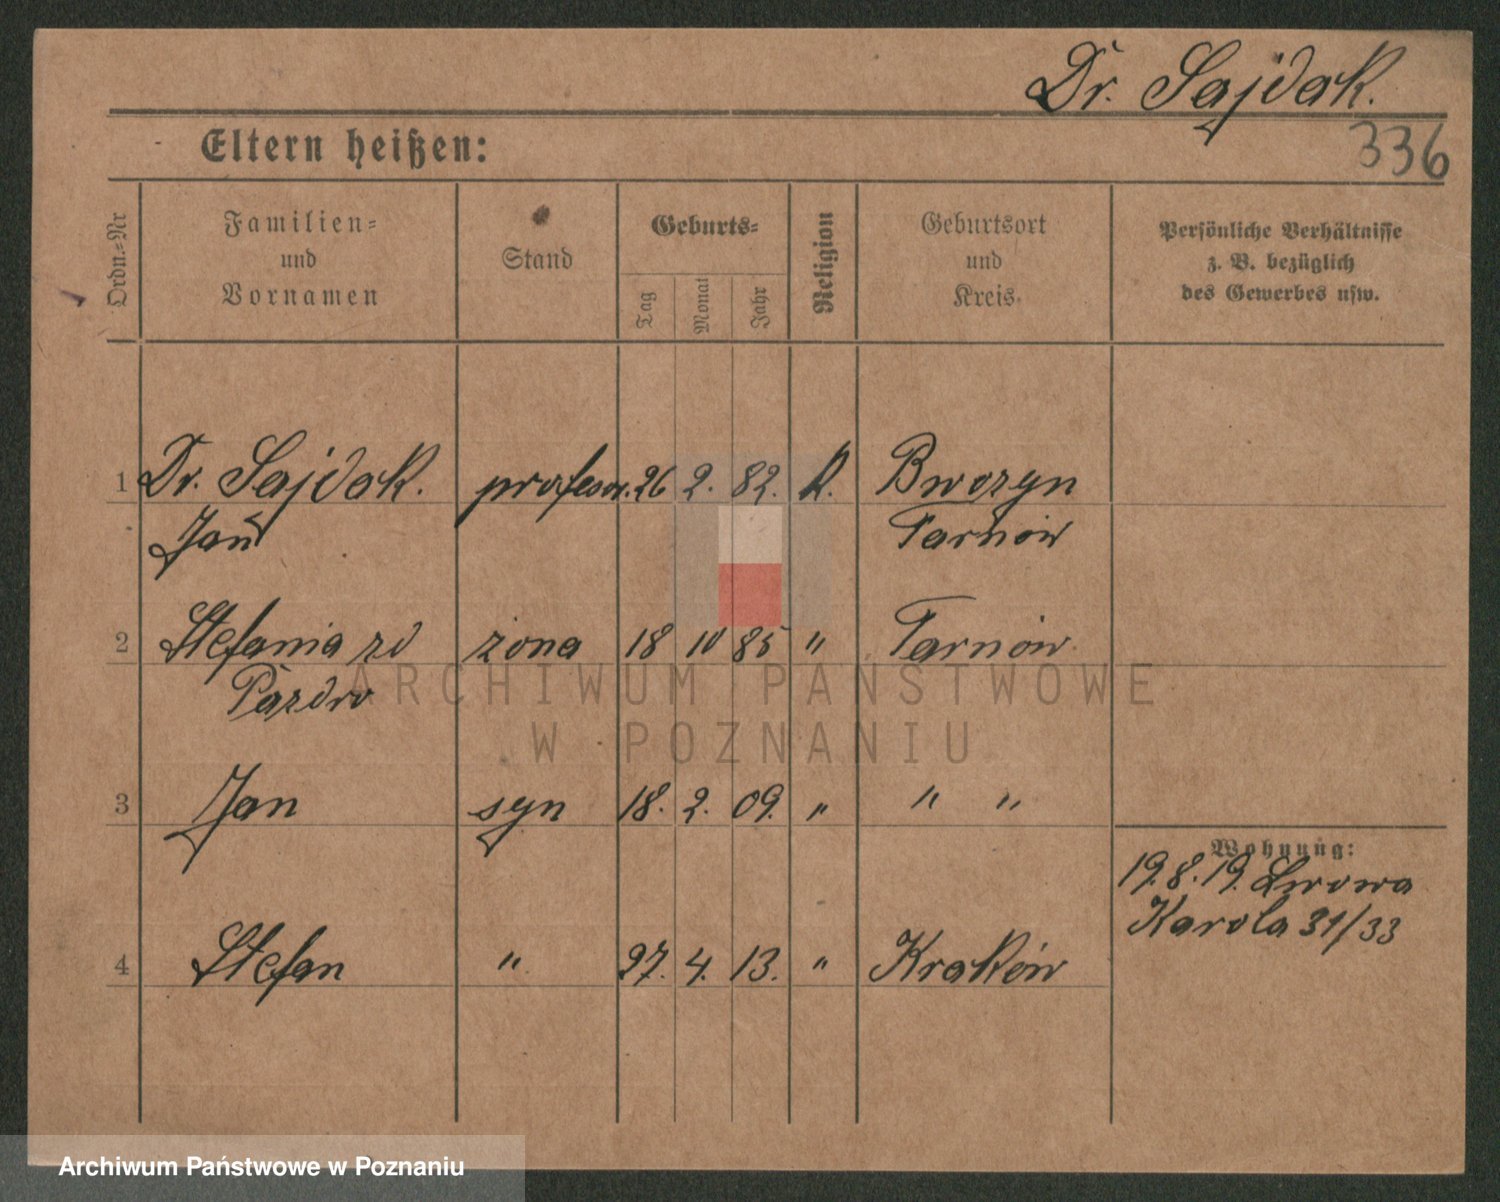 Dr. Sajdak.
336
Eltern heißen:
Ordn.-Nr
Familien-
und
Vornamen
Stand
Geburts-
Tag
Monat
Jahr
Religion
Geburtsort
und
Kreis
Persönliche Verhältnisse
z. B. bezüglich
des Gewerbes usw.
1 Dr. Sajdak. profesor. 26 2. 82. k. Bworzyn
Jan Tarnów
2 Stefania zd żona 18 10 85 " Tarnów
Pazdro
3 Jan syn 18. 2. 09. " " "
Wohnung:
19.8.19. Lwowa
Karola 31/33
4 Stefan " 27. 4. 13. " Kraków
ARCHIWUM PAŃSTWOWE
W POZNANIU
Archiwum Państwowe w Poznaniu